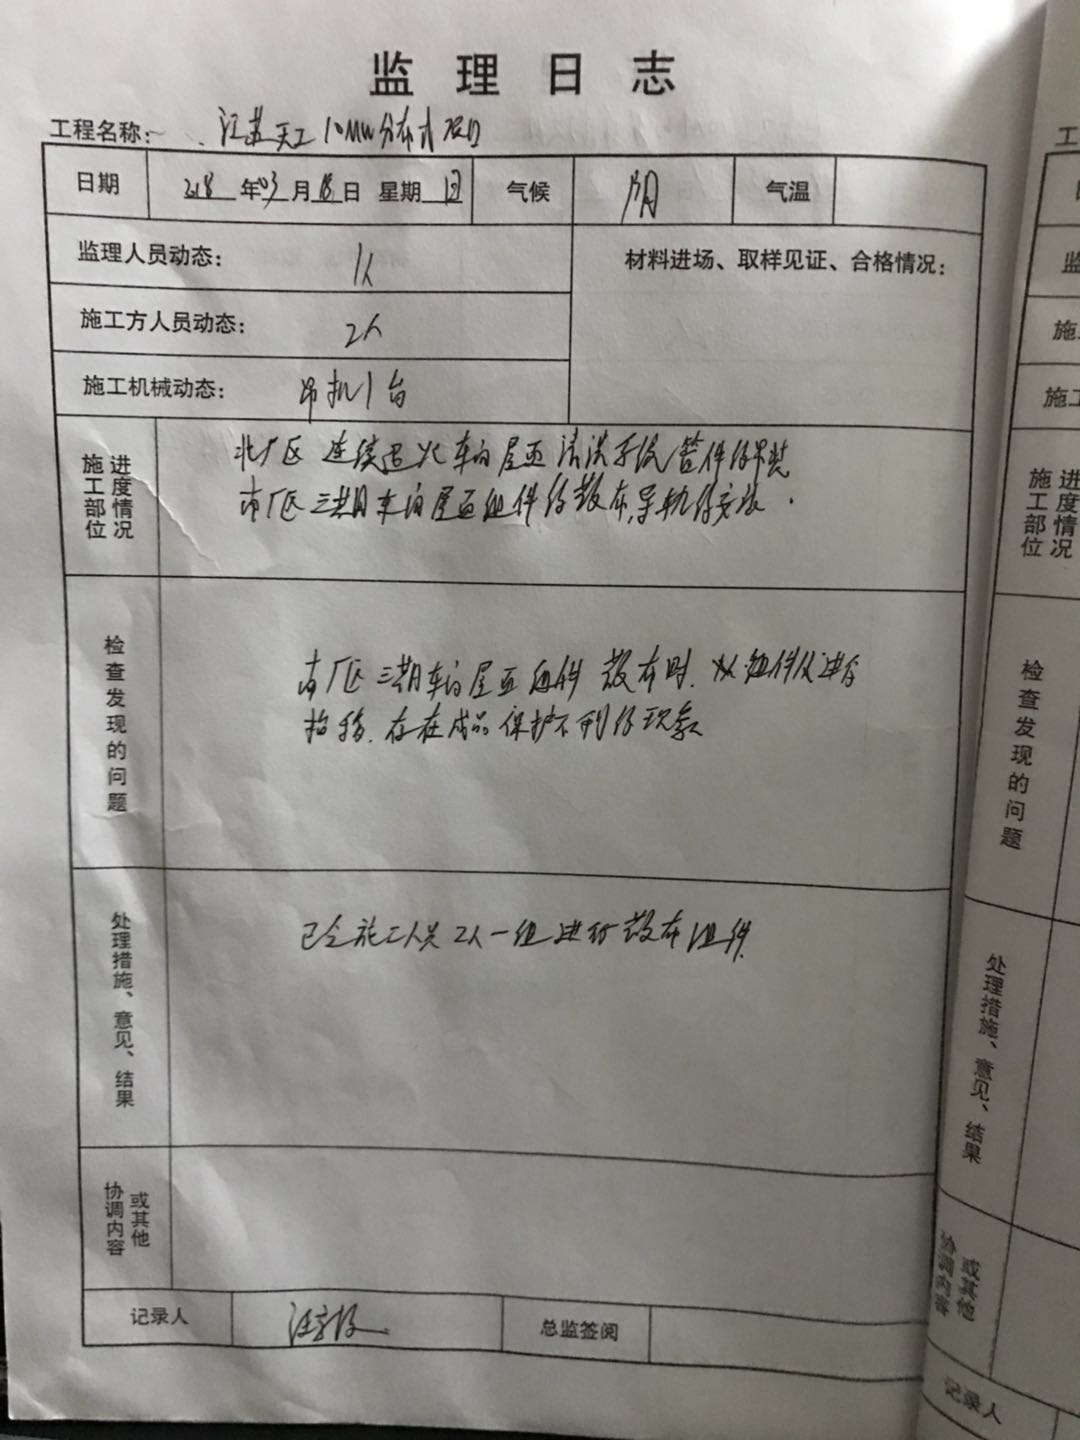 监理日志
工程名称: 江苏天工10MW分布式项目
日期 2018年03月18日 星期日 气候 阴 气温
监理人员动态: 1人
材料进场、取样见证、合格情况:
施工方人员动态: 2人
施工机械动态: 吊机1台
施工部位进度情况
北厂区连续退火车间屋面清洗系统管件的吊装
南厂区三期车间屋面组件的散布,导轨的安装.
检查发现的问题
南厂区三期车间屋面组件散布时.
拍档.存在成品保护不利的现象
处理措施、意见、结果
已令施工人员2人一组进行散布组件.
协调内容或其他
记录人
总监签阅
工
监
施
施工
施工部位进度情况
检查发现的问题
处理措施、意见、结果
协调内容或其他
记录人